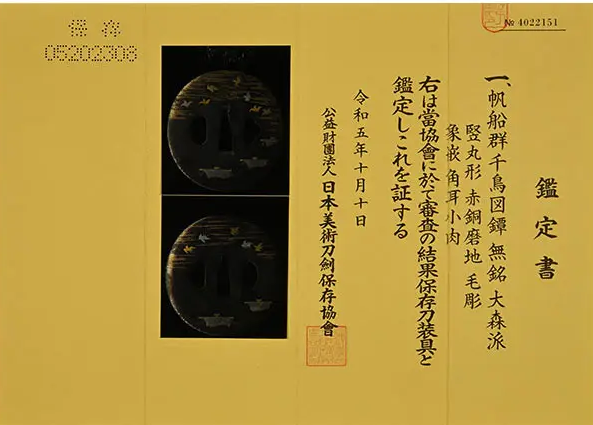 № 4022151
鑑定書
一、帆船群千鳥図鐔 無銘 大森派
竪丸形 赤銅磨地 毛彫
象嵌 角耳小肉
右は當協會に於て審査の結果保存刀装具と
鑑定しこれを証する
令和五年十月十日
公益財團法人 日本美術刀劍保存協會
保存
05202308